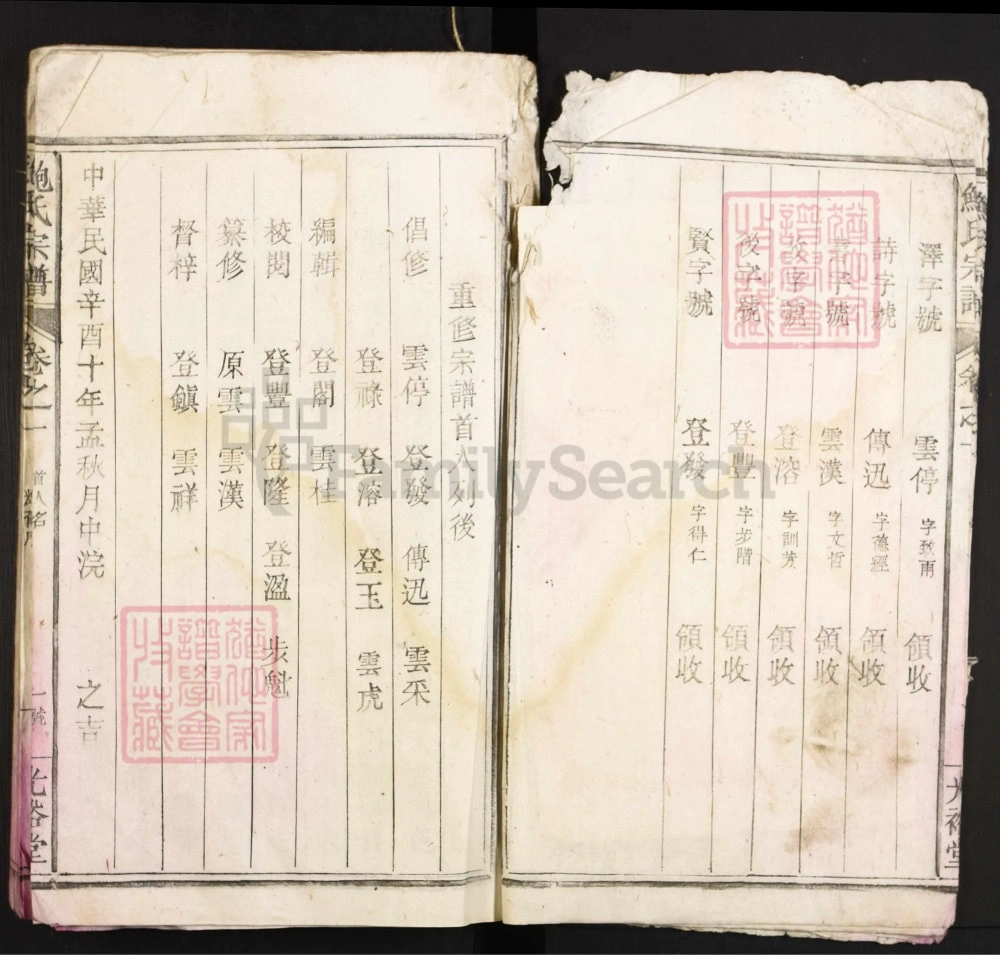 鮑氏宗譜
光裕堂
澤字號 雲停 字致甫 領收
詩字號 傳迅 字德經 領收
書字號 雲漢 字文哲 領收
登溶 字訓芳 領收
後字號 登豐 字步階 領收
賢字號 登發 字得仁 領收
重修宗譜首人列後
倡修 雲停 登發 傳迅 雲采
登祿 登溶 登玉 雲虎
編輯 登閣 雲桂
校閱 登豐 登隆 登溫 步魁
纂修 原雲 雲漢
督梓 登鎮 雲祥
中華民國辛酉十年孟秋月中浣 之吉
鮑氏宗譜 卷之一 首人名 一號 光裕堂
FamilySearch